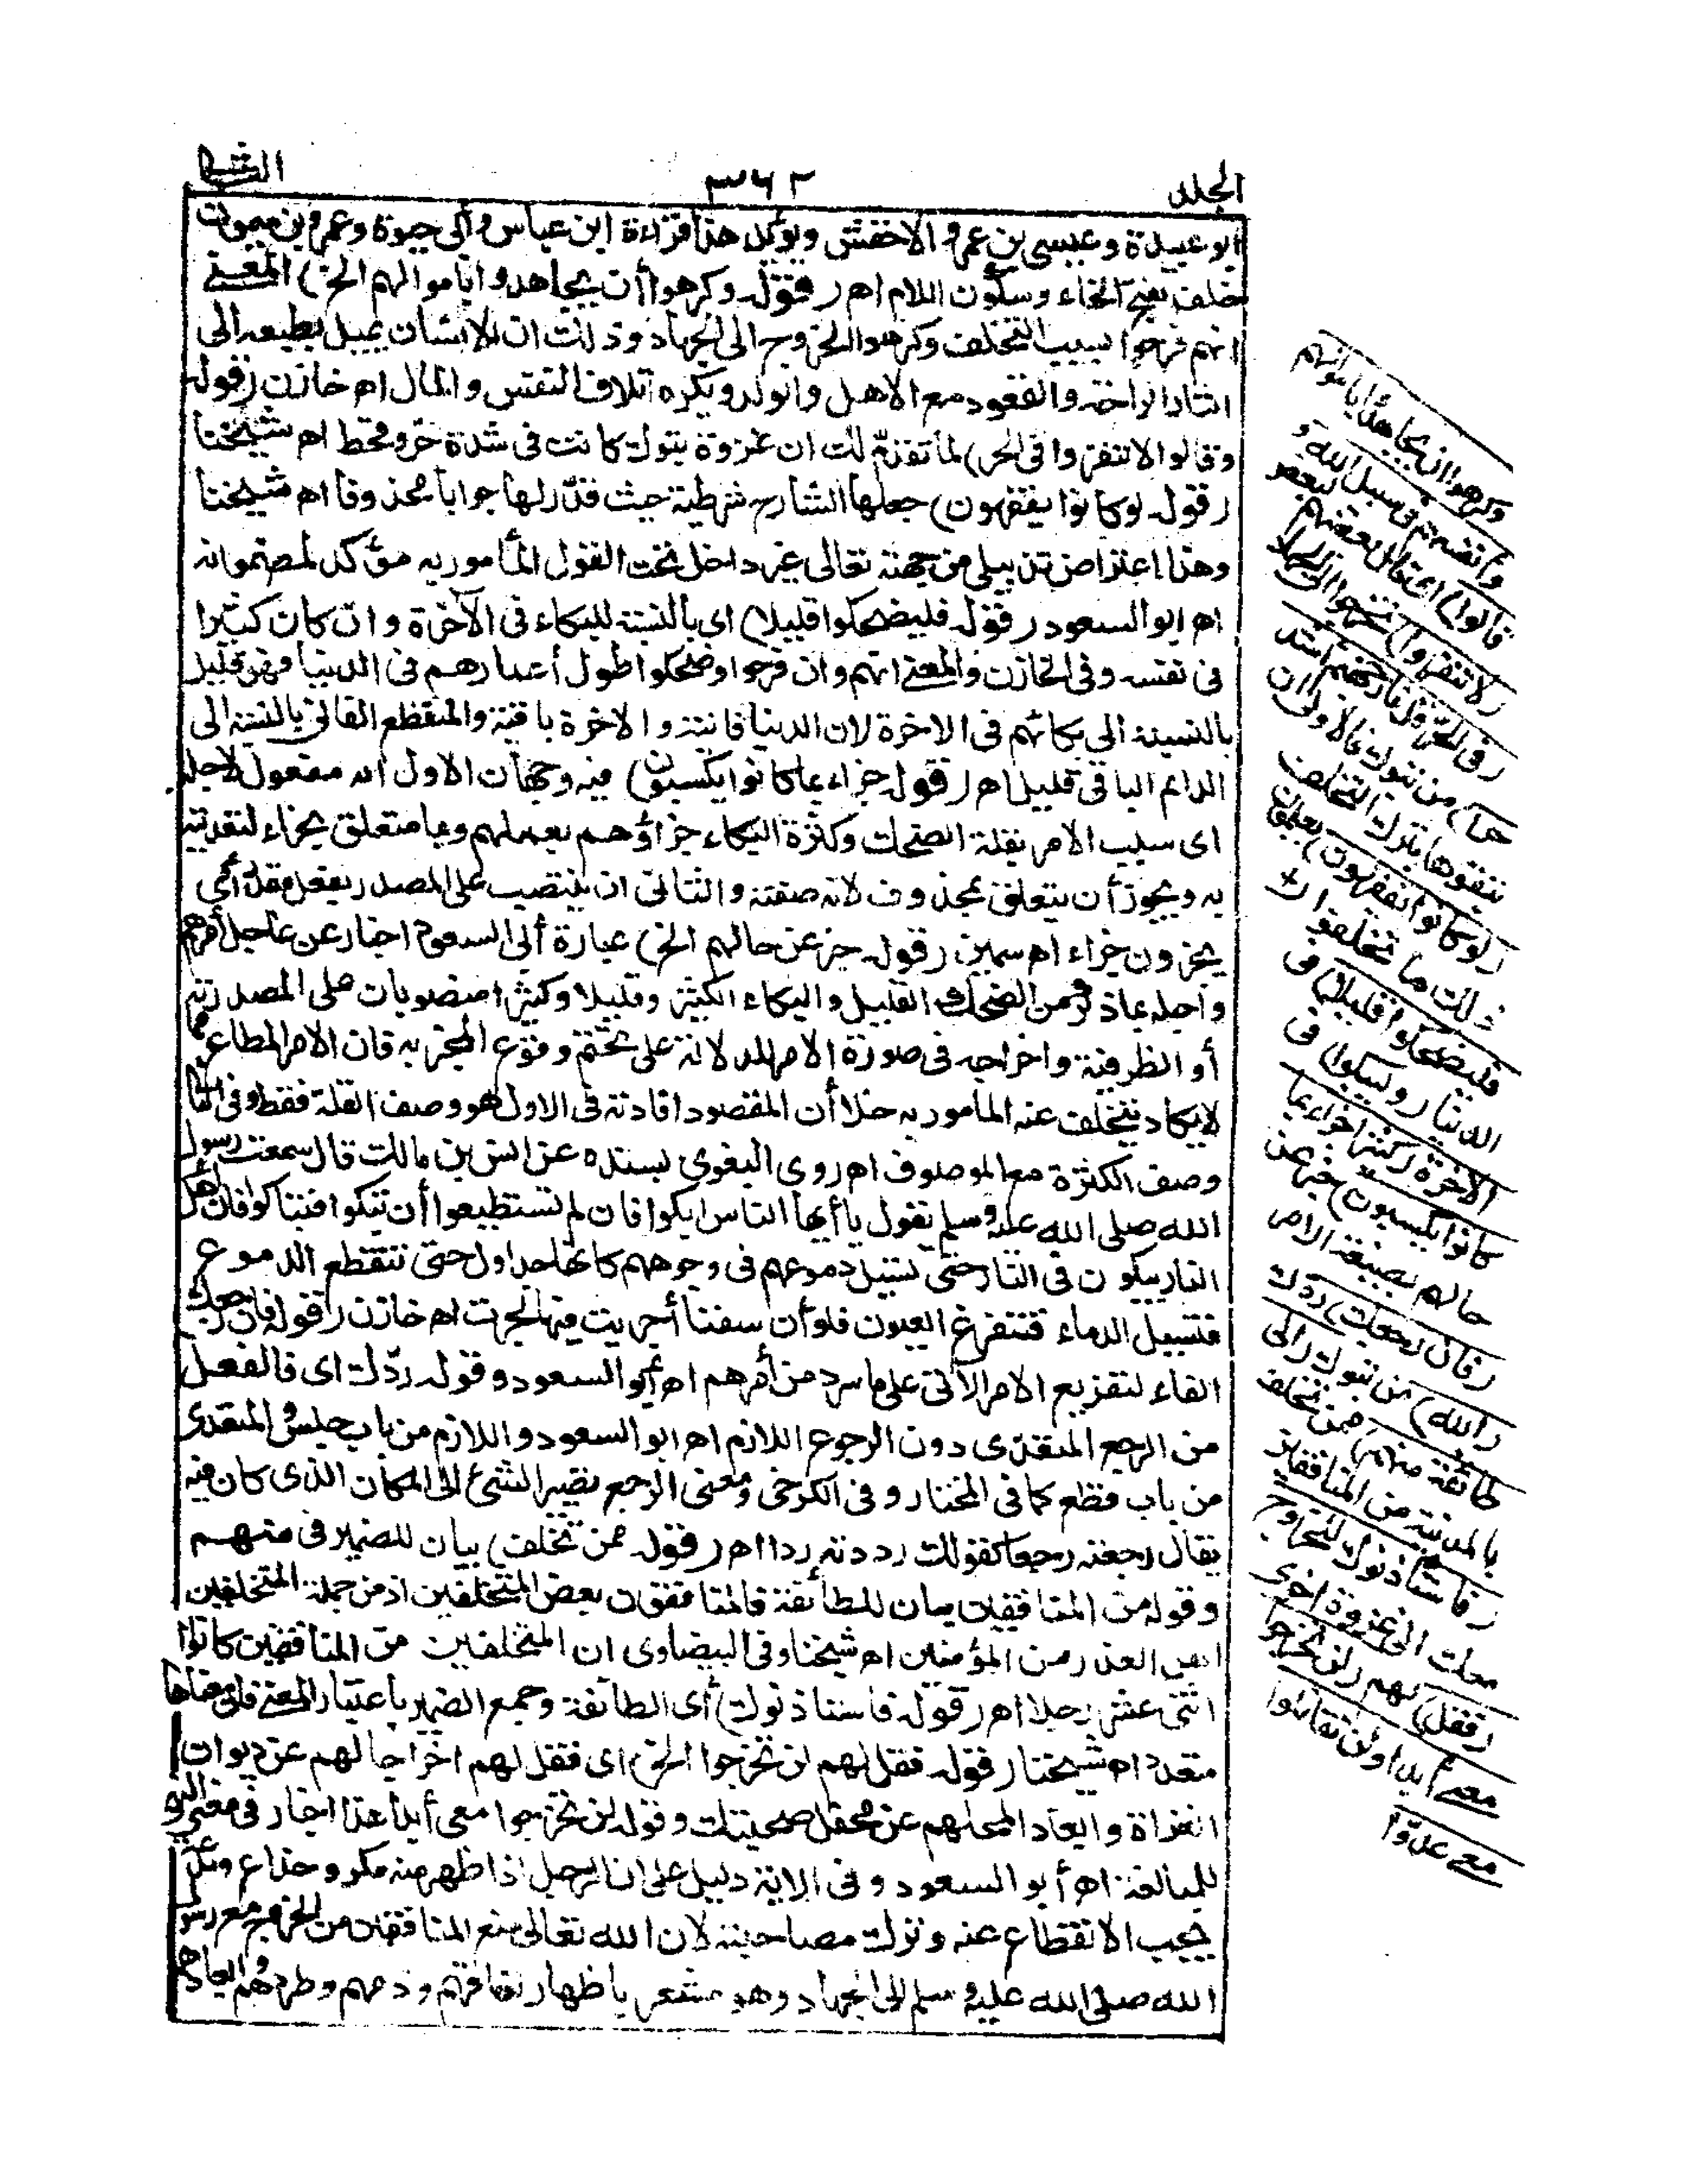 الجلد
٣٦٢
الثانى
ابو عبيدة وعيسى بن عمر و الاخفش ويؤكد هذا قراءة ابن عباس وأبى حيوة وعمرو بن ميمون
خلف بفتح الخاء وسكون اللام اهـ (قوله وكرهوا أن يجاهدوا باموالهم الخ) المعنى
انهم فرحوا بسبب التخلف وكرهوا الخروج الى الجهاد وذلك ان الانسان يميل بطبعه الى
ايثار الراحة والقعود مع الاهل والولد ويكره اتلاف النفس والمال اهـ خازن (قوله
وقالوا لا تنفروا فى الحر) لما تقدم لك ان غزوة تبوك كانت فى شدة حر وقحط اهـ شيخنا
(قوله لو كانوا يفقهون) جعلها الشارح شرطية حيث قدر لها جوابا محذوفا اهـ شيخنا
وهذا اعتراض تذييلى من جهته تعالى غير داخل تحت القول المأمور به مؤكد لمضمونه
اهـ ابو السعود (قوله فليضحكوا قليلا) اى بالنسبة للبكاء فى الآخرة وان كان كثيرا
فى نفسه وفى الخازن والمعنى انهم وان فرحوا وضحكوا طول أعمارهم فى الدنيا فهو قليل
بالنسبة الى بكائهم فى الاخرة لان الدنيا فانية والاخرة باقية والمنقطع الفانى بالنسبة الى
الدائم الباقى قليل اهـ (قوله جزاء بما كانوا يكسبون) فيه وجهان الاول انه مفعول لاجله
اى سبب الامر بقلة الضحك وكثرة البكاء جزاؤهم بعملهم وبما متعلق بجزاء لتعديته
به ويجوز أن يتعلق بمحذوف لانه صفته والثانى ان ينتصب على المصدر بفعل مقدر أى
يجزون جزاء اهـ سمين (قوله خبر عن حالهم الخ) عبارة أبى السعود اخبار عن عاجل أمرهم
وآجله بما ذكر من الضحك القليل والبكاء الكثير وقليلا وكثيرا منصوبان على المصدرية
أو الظرفية واخراجه فى صورة الامر للدلالة على تحتم وقوع المخبر به فان الامر المطاع مما
لايكاد يتخلف عنه المأمور به خلا أن المقصود افادته فى الاول هو وصف القلة فقط وفى الثانى
وصف الكثرة مع الموصوف اهـ روى البغوى بسنده عن انس بن مالك قال سمعت رسول
الله صلى الله عليه وسلم يقول ياأيها الناس ابكوا فان لم تستطيعوا أن تبكوا فتباكوا فان أهل
النار يبكون فى النار حتى تسيل دموعهم فى وجوههم كانها جداول حتى تنقطع الدموع
فتسيل الدماء فتتقرغ العيون فلو أن سفنا أجريت فيها لجرت اهـ خازن (قوله فان رجعك
الفاء لتفريع الامر الآتى على ما سرد من أمرهم اهـ أبو السعود وقوله ردّك اى فالفعل
من الرجع المتعدى دون الرجوع اللازم اهـ ابو السعود واللازم من باب جلس والمتعدى
من باب قطع كما فى المختار وفى الكرخى ومعنى الرجع تصيير الشئ الى المكان الذى كان فيه
يقال رجعته رجعا كقولك رددته ردا اهـ (قوله ممن تخلف) بيان للضمير فى منهم
وقوله من المنافقين بيان للطائفة فالمنافقون بعض المتخلفين اذ من جملة المتخلفين
اهل العذر من المؤمنين اهـ شيخنا وفى البيضاوى ان المتخلفين من المنافقين كانوا
اثنى عشر رجلا اهـ (قوله فاستاذنوك) أى الطائفة وجمع الضمير باعتبار المعنى فان معناها
متعدد اهـ شيخنا (قوله فقل لهم لن تخرجوا الخ) اى فقل لهم اخراجا لهم عن ديوان
الغزاة وابعادا لمحلهم عن محفل صحبتك وقوله لن تخرجوا معى أبدا هذا اخبار فى معنى النهى
للمبالغة اهـ أبو السعود وفى الاية دليل على ان الرجل اذا ظهر منه مكر وخداع وبدعة
يجب الانقطاع عنه وترك مصاحبته لان الله تعالى منع المنافقين من الخروج مع رسول
الله صلى الله عليه وسلم الى الجهاد وهو مشعر باظهار نفاقهم وذمهم وطردهم وابعادهم
وكرهوا ان يجاهدوا باموالهم
وأنفسهم فى سبيل الله و
قالوا) اى قال بعضهم لبعض
(لا تنفروا) تخرجوا الى الجهاد
(فى الحر قل نار جهنم أشد
حرا) من تبوك فالاولى ان
يتقوها بترك التخلف
(لو كانوا يفقهون) يعلمون
ذلك ما تخلفوا
(فليضحكوا قليلا) فى
الدنيا (وليبكوا) فى
الاخرة (كثيرا جزاء بما
كانوا يكسبون) خبر عن
حالهم بصيغة الامر
(فان رجعك) ردّك
(الله) من تبوك (الى
طائفة منهم) ممن تخلف
بالمدينة من المنافقين
(فاستأذنوك للخروج
معك) الى غزوة اخرى
(فقل) لهم (لن تخرجوا
معى أبدا ولن تقاتلوا
معى عدوّا